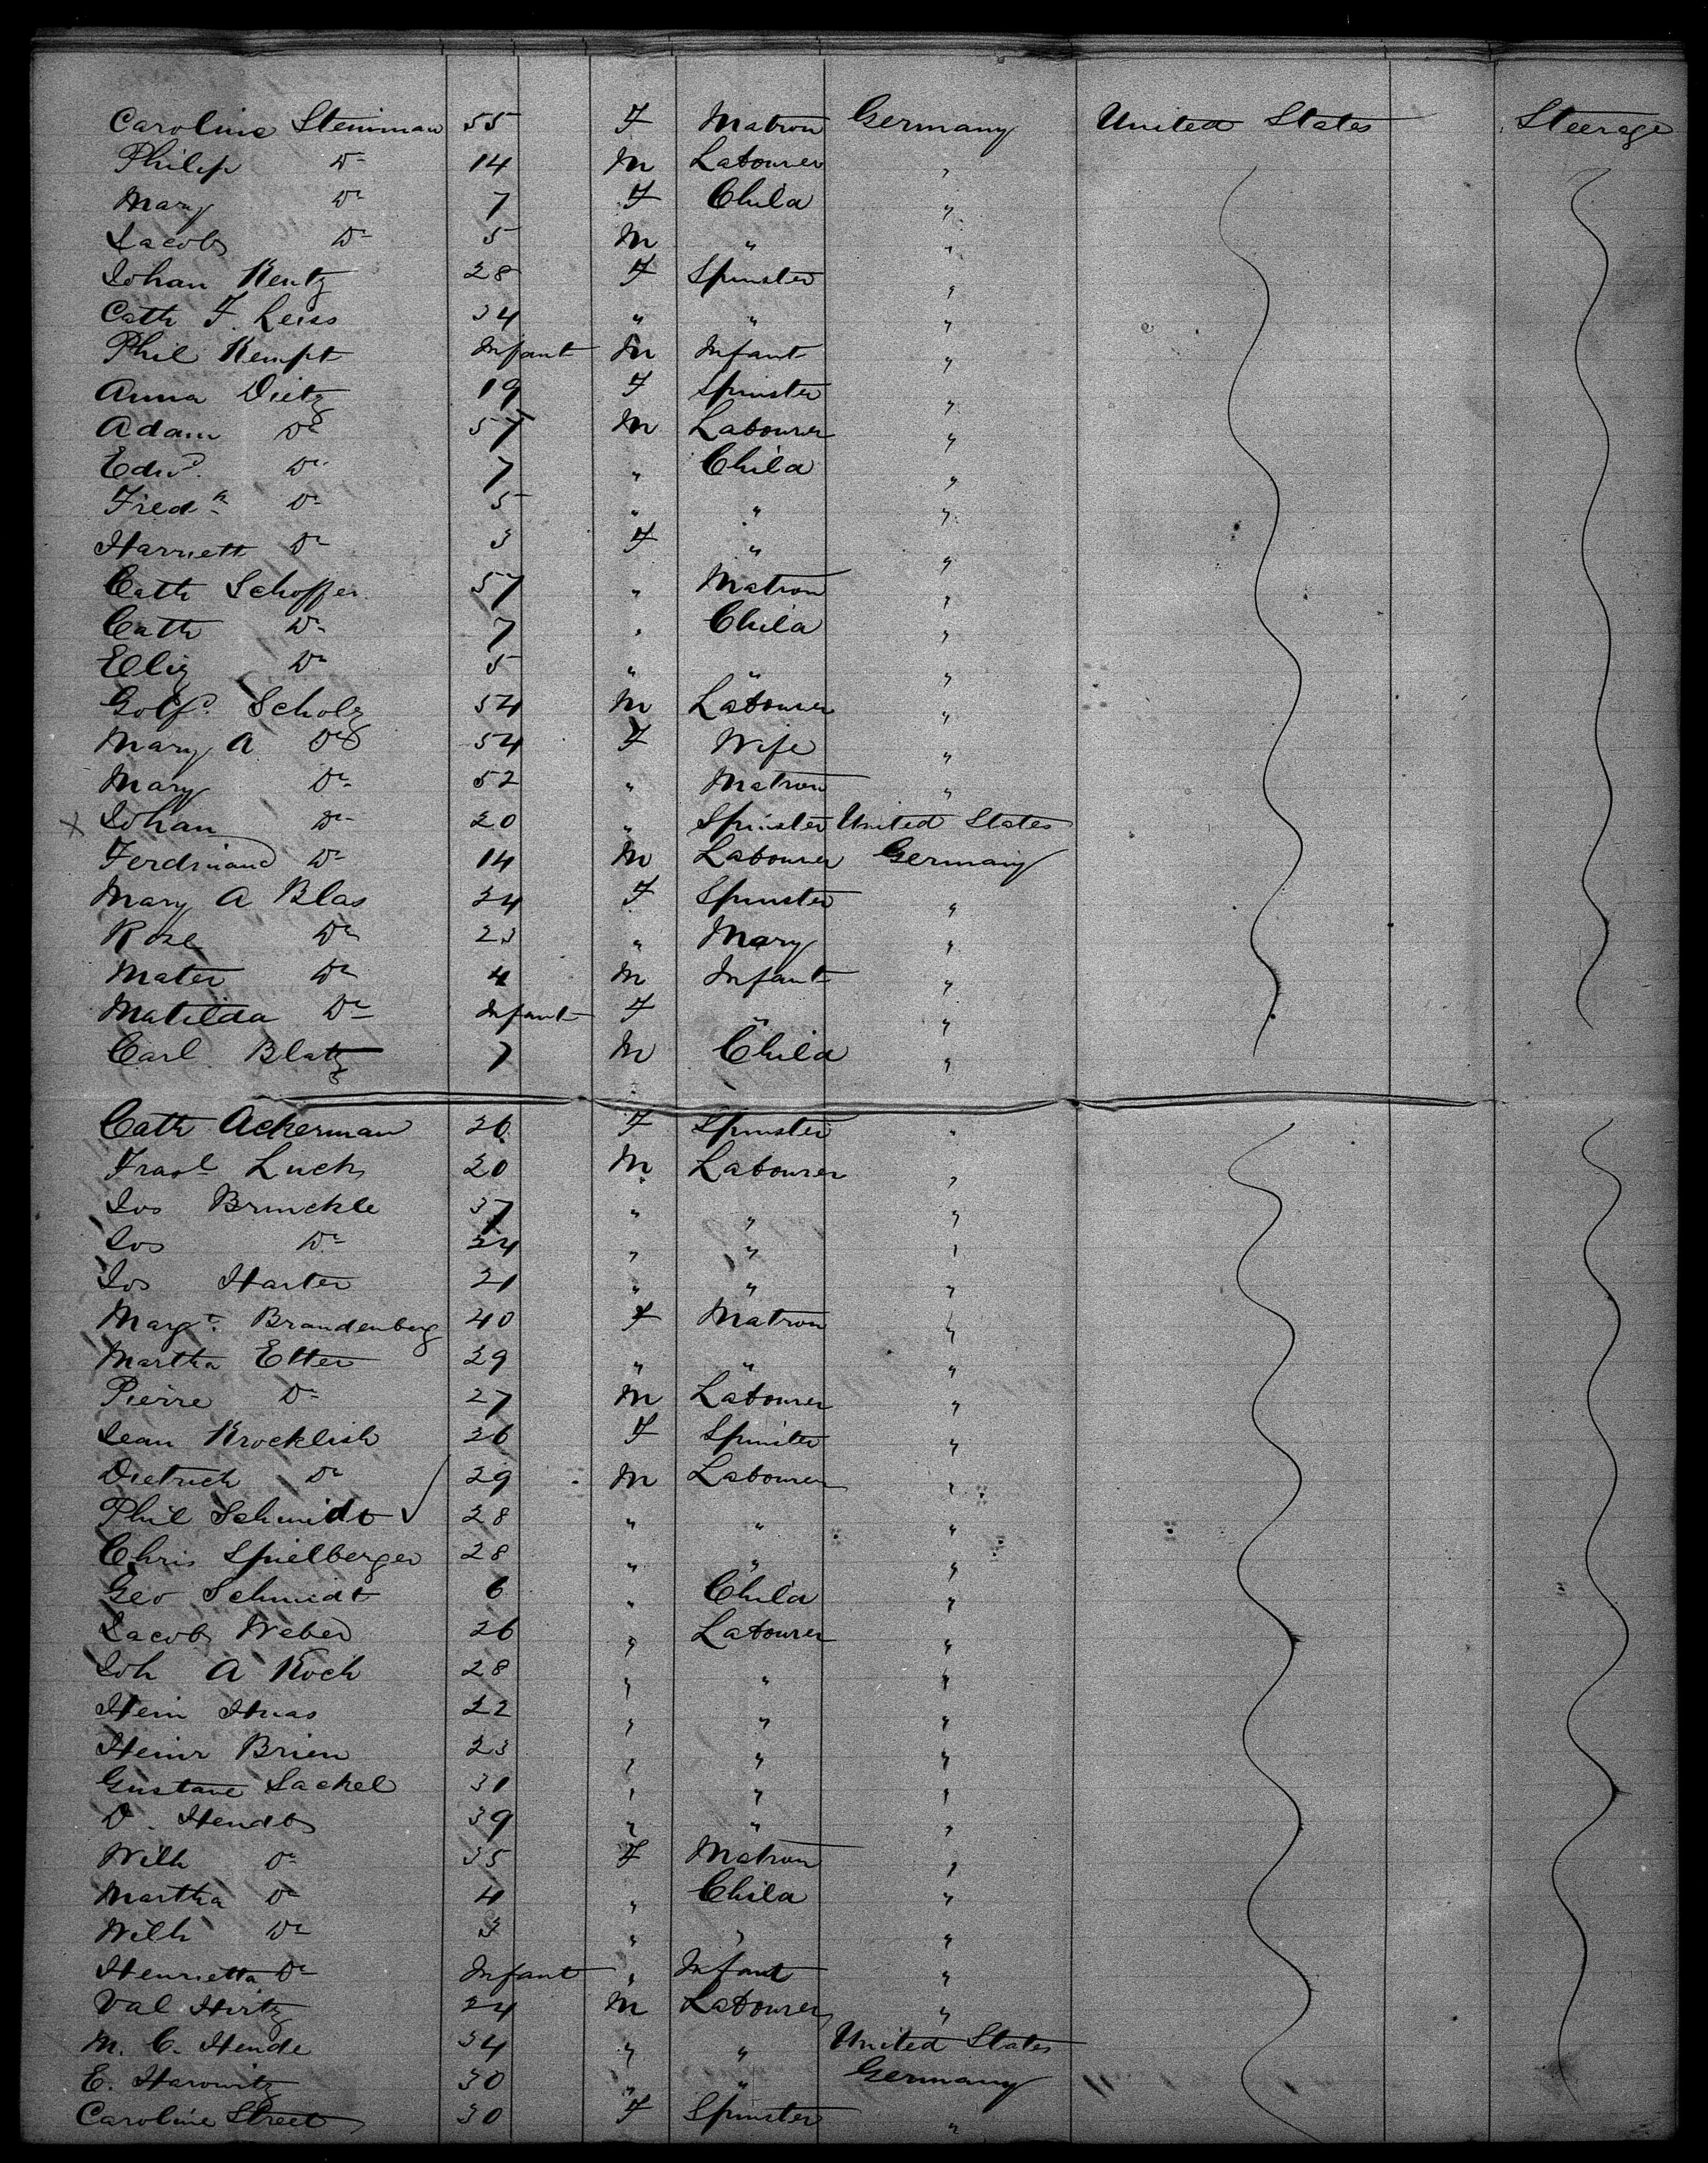 Caroline Steinman 55 F Matron Germany United States Steerage
Philip Do 14 M Labourer "
Mary Do 7 F Child "
Jacob Do 5 M " "
Johan Rentz 28 F Spinster "
Cath F. Leiss 34 " " "
Phil Kempt Infant M Infant "
Anna Dietz 19 F Spinster "
Adam Do 57 M Labourer "
Edwd. Do 7 " Child "
Fredk Do 5 " " "
Harriett Do 3 F " "
Cath Schoffer 57 " Matron "
Cath Do 7 " Child "
Eliz Do 5 " " "
Golfd. Scholz 54 M Labourer "
Mary A Do 54 F Wife "
Mary Do 52 " Matron "
x Johan Do 20 " Spinster United States
Ferdinand Do 14 M Labourer Germany
Mary A Blas 24 F Spinster "
Rose Do 23 " Mary "
Mater Do 4 M Infant "
Matilda Do Infant F " "
Carl Blatz 7 M Child "
Cath Ackerman 26 F Spinster "
Luck 20 M Labourer "
Jos Brinckle 37 " " "
Jos Do 24 " " "
Jos Harter 21 " " "
Margt. Brandenberg 40 F Matron "
Martha Etter 29 " " "
Pierre Do 27 M Labourer "
Jean Krocklish 26 F Spinster "
Dietrich Do 29 M Labourer "
Phil Schmidt ✓ 28 " " "
Chris Spielberger 28 " " "
Geo Schmidt 6 " Child "
Jacob Weber 26 " Labourer "
Joh A Koch 28 " " "
Hein 22 " " "
Heinr Brien 23 " " "
Gustave Sackel 31 " " "
D. Hendb 39 " " "
Wilh Do 35 F Matron "
Martha Do 4 " Child "
Wilh Do 3 " " "
Henrietta Do Infant " Infant "
Val Hirtz 24 M Labourer "
M. C. Hende 34 " " United States
E. Harowitz 30 " " Germany
Caroline Street 30 F Spinster "